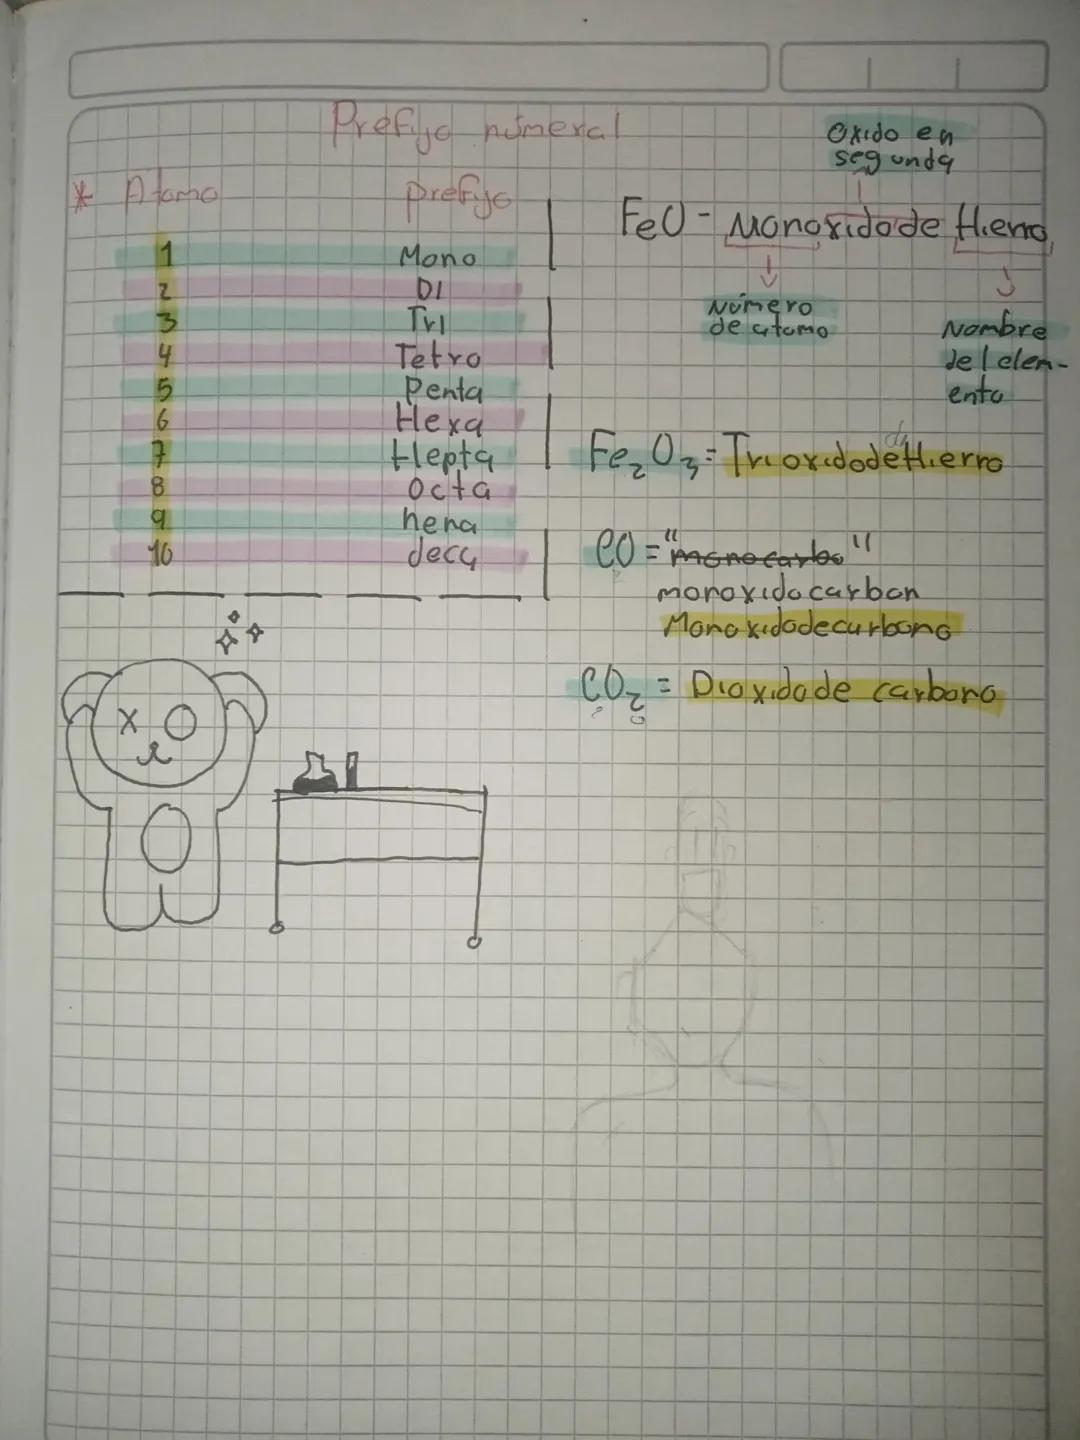 Prefijo númeral
* Atomo prefijo
1 Mono
2 DI
3 Tri
4 Tetro
5 Penta
6 Hexa
7 Hepta
8 Octa
9 nena
10 deca
Oxido en
segunda
FeO - Monoxido de Hierro
Número
de atomo
Nombre
del elem-
ento
di
Fe₂O₃ = Trioxido de Hierro
CO = "monocarbo"
monoxido carbon
Monoxido de carbono
CO₂ = Dioxido de carbono